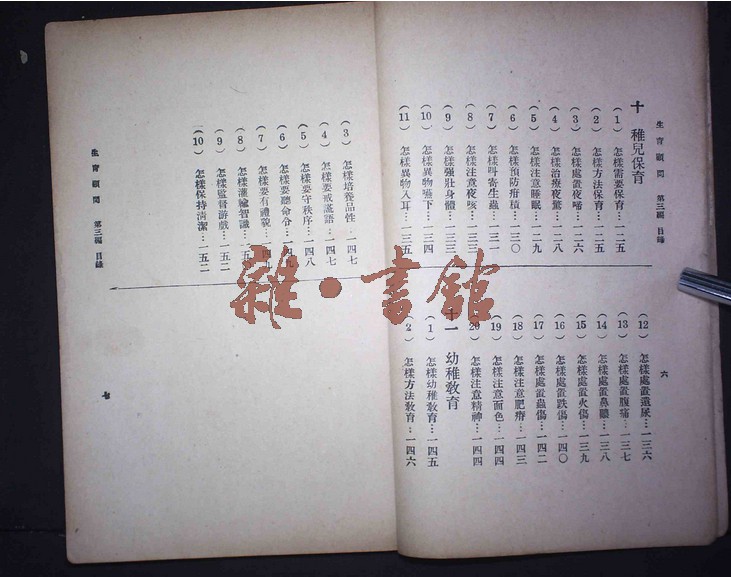 生育顧問　第三編　目錄
十　稚兒保育
(1) 怎樣需要保育…一二五
(2) 怎樣方法保育…一二五
(3) 怎樣處置夜啼…一二六
(4) 怎樣治療夜驚…一二八
(5) 怎樣注意睡眠…一二九
(6) 怎樣預防疳積…一三〇
(7) 怎樣 寄生蟲…一三一
(8) 怎樣注意夜咳…一三三
(9) 怎樣強壯身體…一三三
(10) 怎樣異物嚥下…一三四
(11) 怎樣異物入耳…一三五
(12) 怎樣處置遺尿…一三六
(13) 怎樣處置腹痛…一三七
(14) 怎樣處置鼻 …一三八
(15) 怎樣處置火傷…一三九
(16) 怎樣處置跌傷…一四〇
(17) 怎樣處置蟲傷…一四二
(18) 怎樣注意肥瘠…一四三
(19) 怎樣注意面色…一四四
(20) 怎樣注意精神…一四四
十一　幼稚敎育
(1) 怎樣幼稚敎育…一四五
(2) 怎樣方法敎育…一四六
六
生育顧問　第三編　目錄
(3) 怎樣培養品性…一四七
(4) 怎樣要戒謊語…一四七
(5) 怎樣要守秩序…一四八
(6) 怎樣要聽命令…一四九
(7) 怎樣要有禮貌…一四九
(8) 怎樣灌輸智識…一五
(9) 怎樣監督游戲…一五二
(10) 怎樣保持淸潔…一五二
七
雜·書館